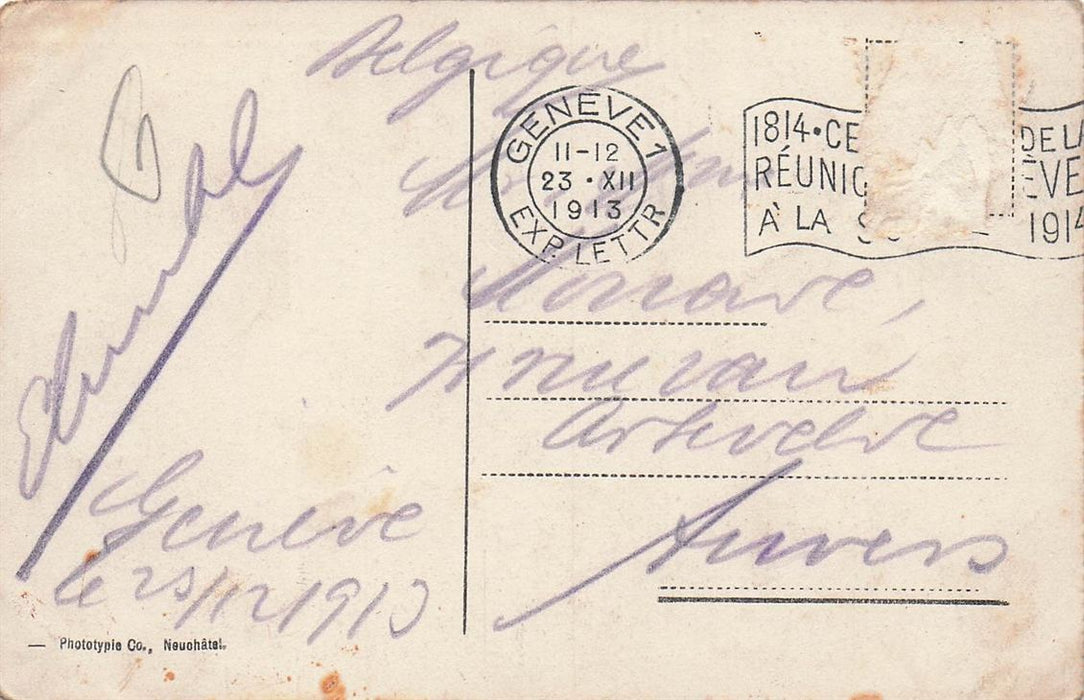 Belgique
GENÈVE 1
11-12
23 • XII
1913
EXP. LETTR
1814 • CE DE LA
RÉUNIO ÈVE
À LA S 1914
rue van
Artevelde
Anvers
Genève
le 23/12/1913
— Phototypie Co., Neuchâtel.